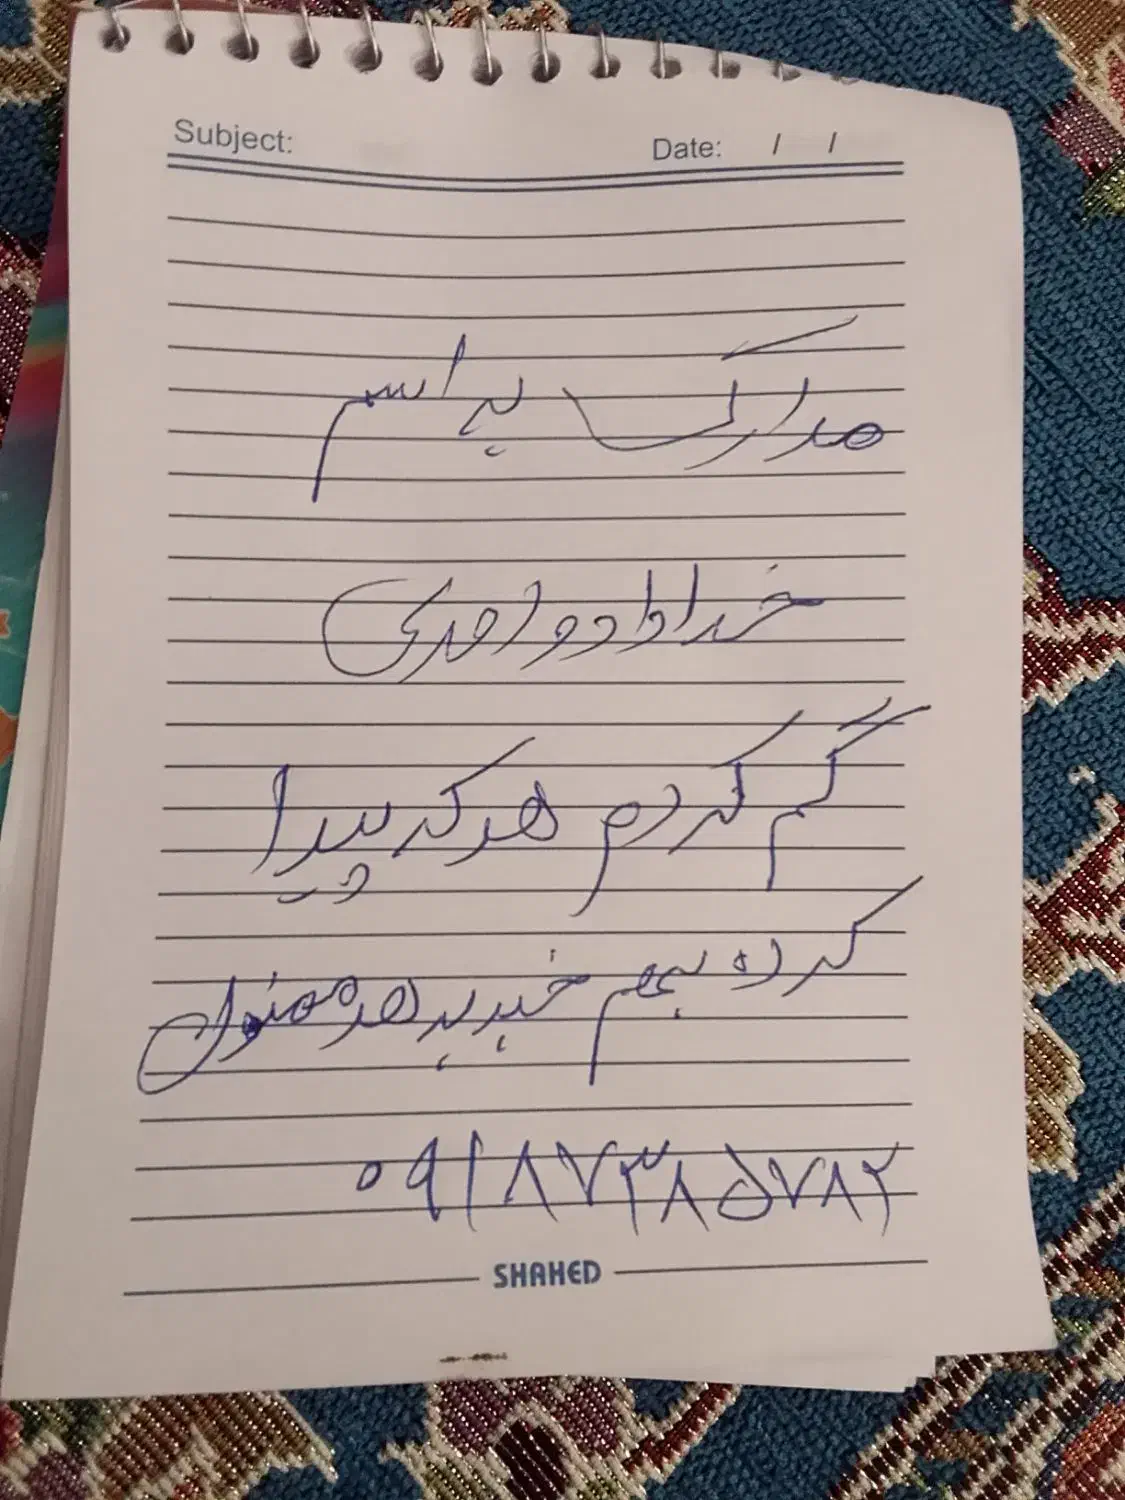 Subject:
Date: / /
مدارک به اسم
خداداد واحدی
گم کردم هر که پیدا
کرده بهم خبر بدهد ممنون
۰۹۱۸۷۳۸۵۷۸۲
SHAHED